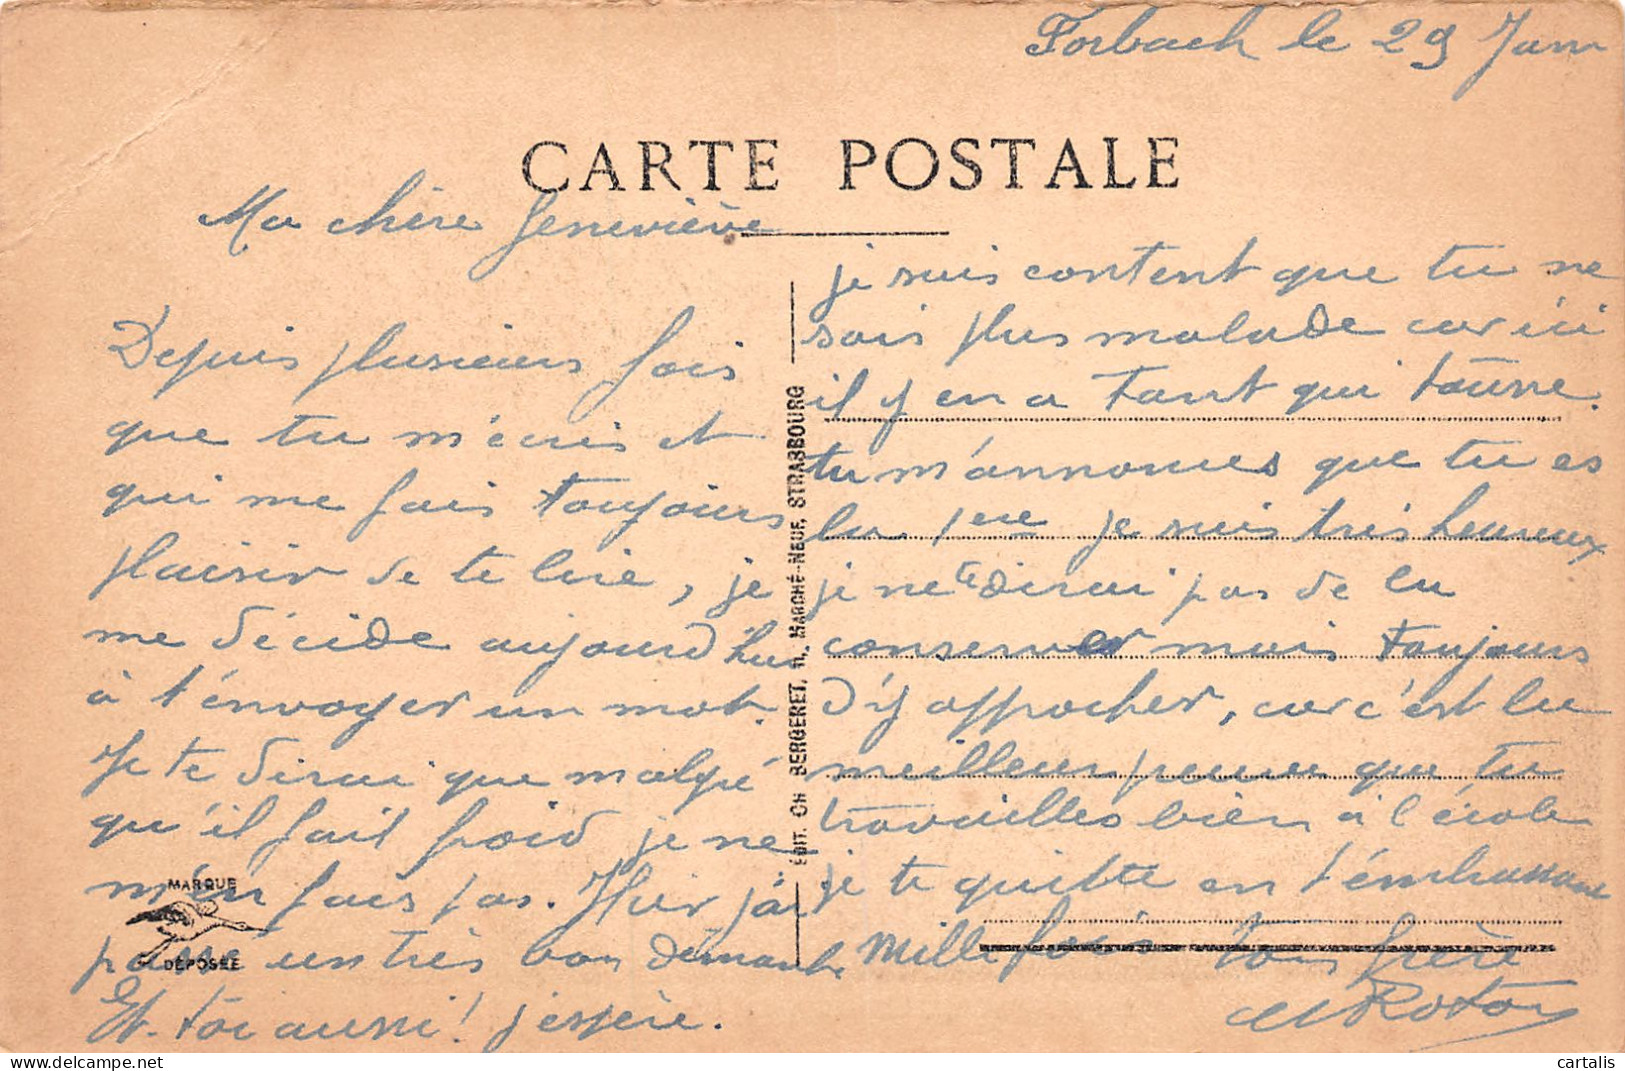 Forbach le 29 Janv
CARTE POSTALE
Ma chère Geneviève
Depuis plusieurs fois
que tu m'écris et
qui me fais toujours
plaisir de te lire, je
me décide aujourd'hui
à t'envoyer un mot.
Je te dirai que malgré
qu'il fait froid je ne
m'en fais pas. Hier j'ai
passé un très bon dimanche
Et toi aussi! j'espère.
MARQUE
DÉPOSÉE
EDIT. CH BERGERET, 11, MARCHÉ-NEUF, STRASBOURG
je suis content que tu ne
sois plus malade car ici
il y en a tant qui tousse.
tu m'annonces que tu es
la 1ere je suis très heureux
je ne te dirai pas de la
conserver mais toujours
d'y approcher, car c'est la
meilleur preuve que tu
travailles bien à l'école
je te quitte en t'embrassant
Mille fois ton frère